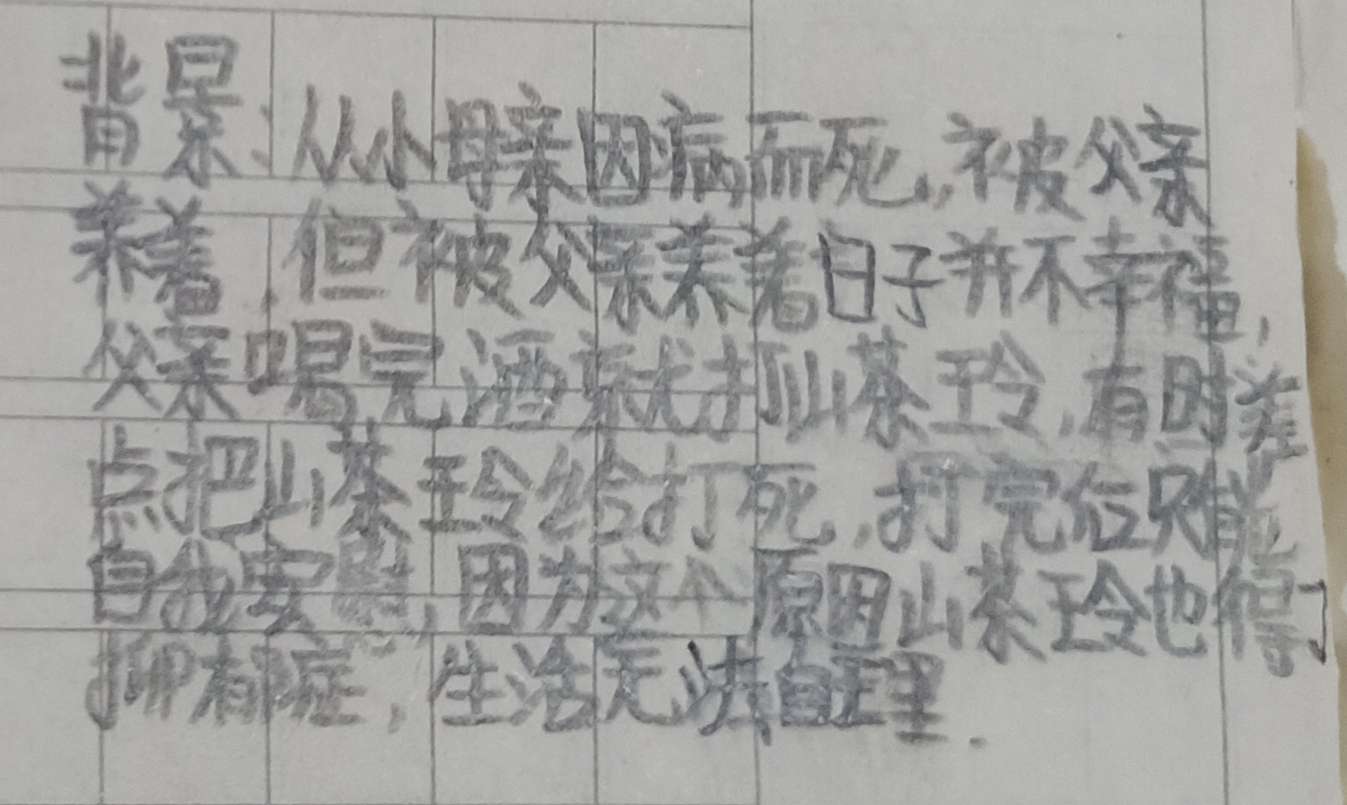 背景:从小母亲因病而死,被父亲
养着,但被父亲养着日子并不幸福,
父亲喝完酒就打山茶玲,有时差
点把山茶玲给打死,打完后只能
自我安慰,因为这个原因山茶玲也得了
抑郁症,生活无法自理.